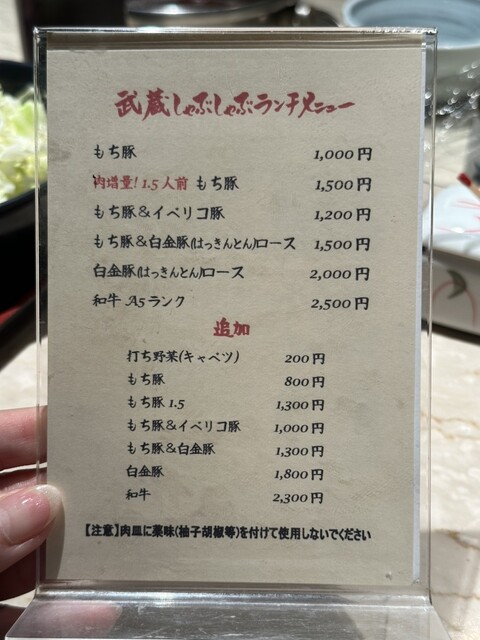 武蔵しゃぶしゃぶランチメニュー
もち豚 1,000円
肉増量! 1.5人前 もち豚 1,500円
もち豚&イベリコ豚 1,200円
もち豚&白金豚(はっきんとん)ロース 1,500円
白金豚(はっきんとん)ロース 2,000円
和牛 A5ランク 2,500円
追加
打ち野菜(キャベツ) 200円
もち豚 800円
もち豚 1.5 1,300円
もち豚&イベリコ豚 1,000円
もち豚&白金豚 1,300円
白金豚 1,800円
和牛 2,300円
【注意】肉皿に薬味(柚子胡椒等)を付けて使用しないでください